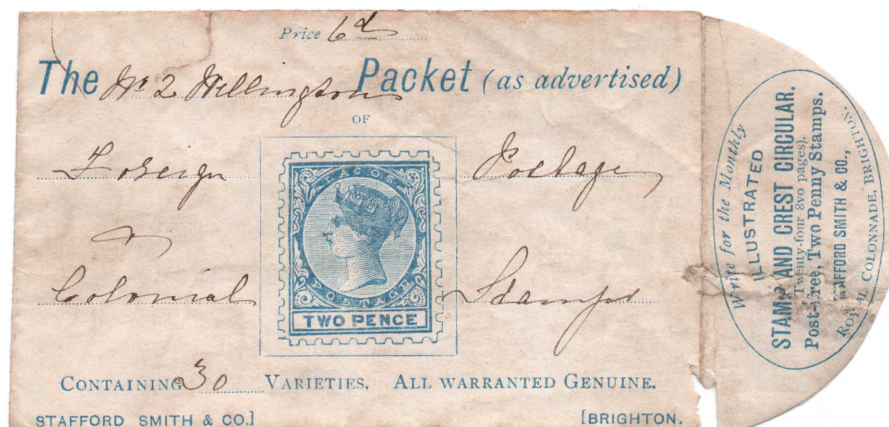 Price 6d
The No 2 Wellington Packet (as advertised)
OF
Foreign Postage
&
Colonial Stamps
LAGOS
POSTAGE
TWO PENCE
CONTAINING 30 VARIETIES. ALL WARRANTED GENUINE.
STAFFORD SMITH & CO.] [BRIGHTON.
Write for the Monthly
ILLUSTRATED
STAMP AND CREST CIRCULAR.
(Twenty-four 8vo pages).
Post-Free, Two Penny Stamps.
STAFFORD SMITH & CO.,
ROYAL COLONNADE, BRIGHTON.